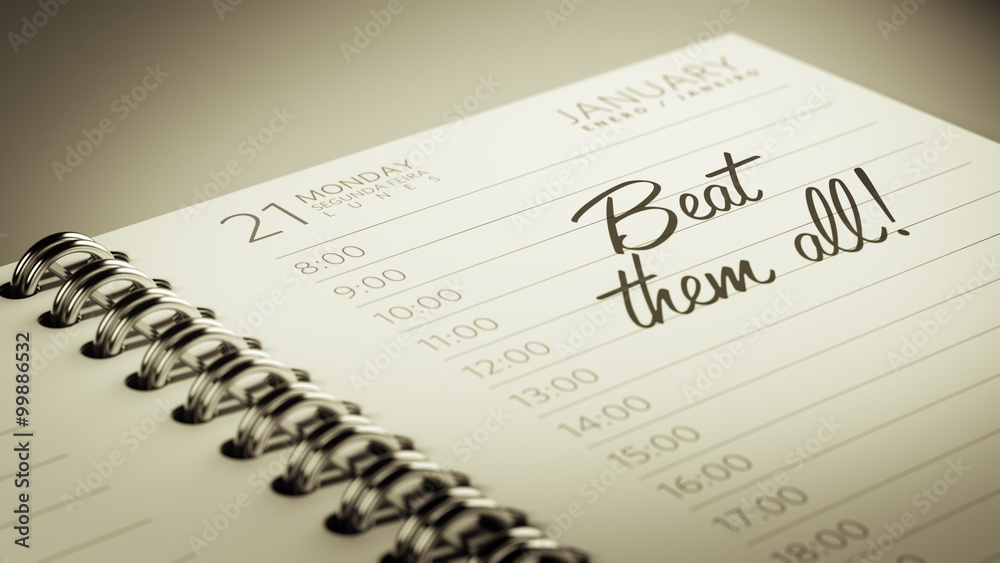 JANUARY
ENERO / JANEIRO
21 MONDAY
SEGUNDA FEIRA
LUNES
Beat
them all!
8:00
9:00
10:00
11:00
12:00
13:00
14:00
15:00
16:00
17:00
18:00
Adobe Stock | #99886532